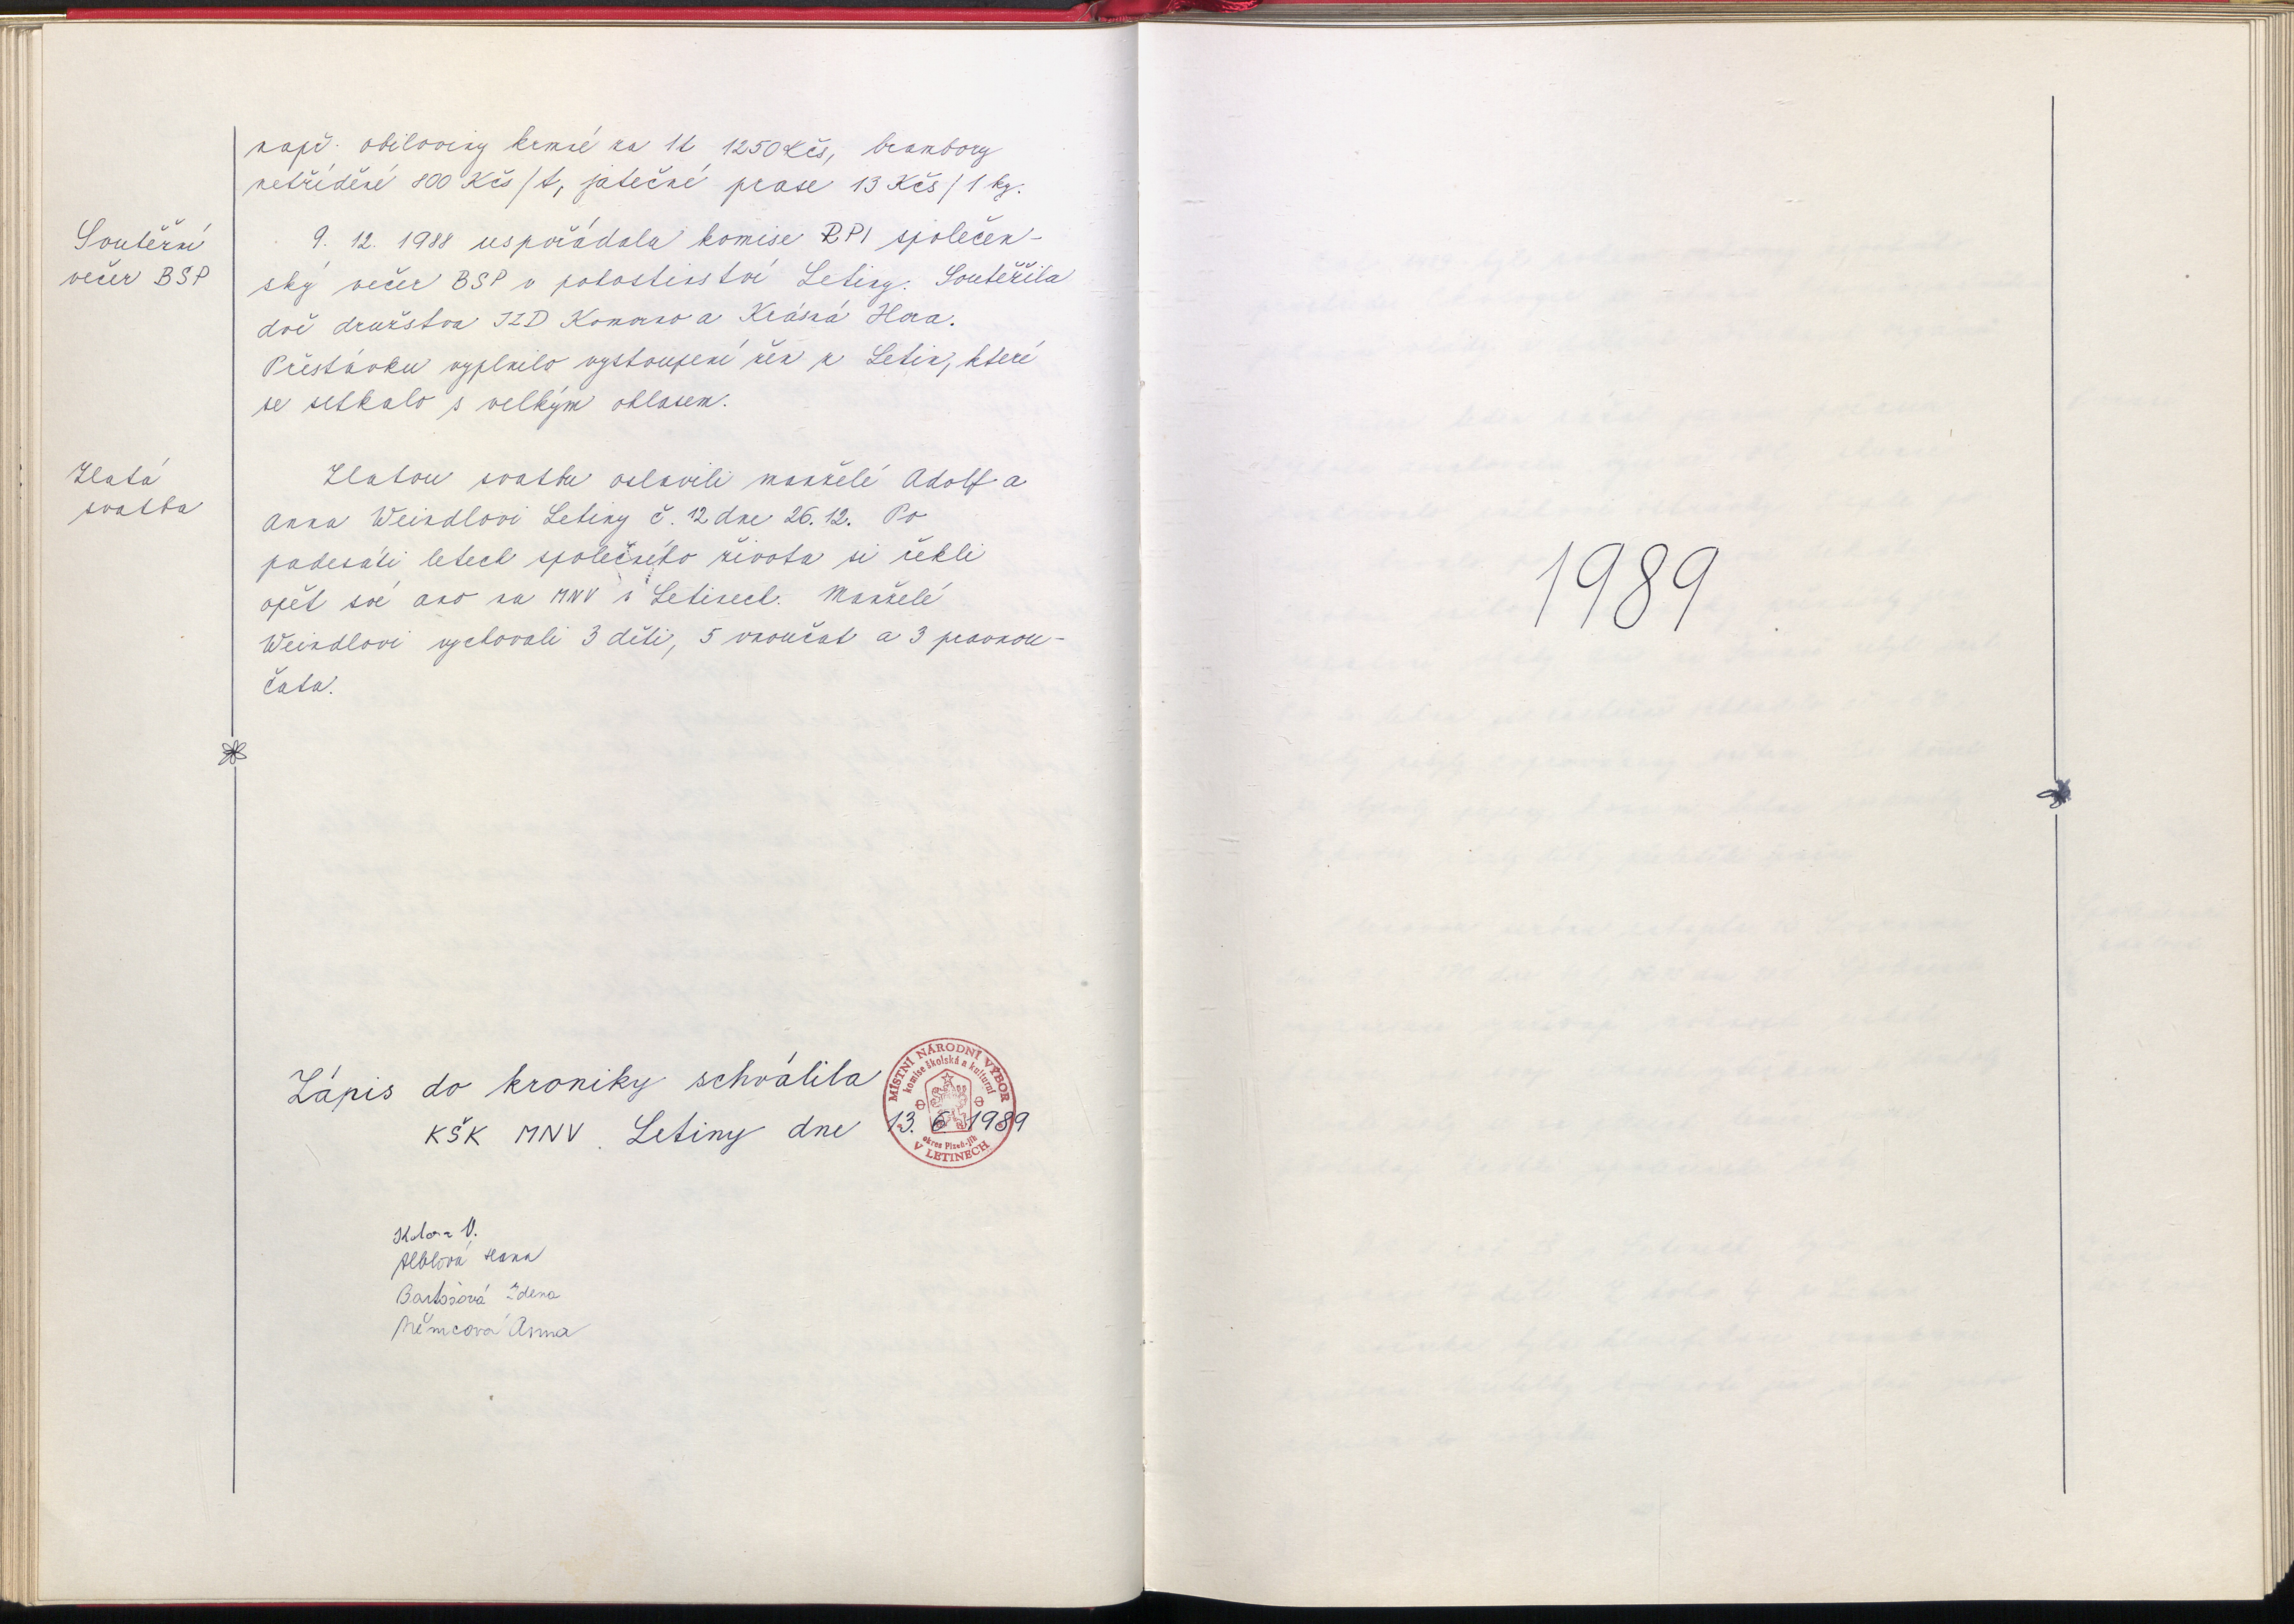 např. obiloviny krmné za 1t 1250 Kčs, brambory
netříděné 800 Kčs/t, jatečné prase 13 Kčs/1 kg.
Soutěžní
večer BSP
9. 12. 1988 uspořádala komise RPI společen-
ský večer BSP v pohostinství Letiny. Soutěžila
dvě družstva JZD Komorno a Krásná Hora.
Přestávku vyplnilo vystoupení žen z Letin, které
se setkalo s velkým ohlasem.
Zlatá
svatba
Zlatou svatbu oslavili manželé Adolf a
Anna Weindlovi Letiny č. 12 dne 26. 12. Po
padesáti letech společného života si řekli
opět své ano na MNV v Letinech. Manželé
Weindlovi vychovali 3 děti, 5 vnoučat a 3 pravnou-
čata.
Zápis do kroniky schválila
KŠK MNV Letiny dne 13. 6 1989
MÍSTNÍ NÁRODNÍ VÝBOR
komise školská a kulturní
okres Plzeň-jih
V LETINECH
V.
Hana
Bartošová Zdena
Němcová Anna
1989